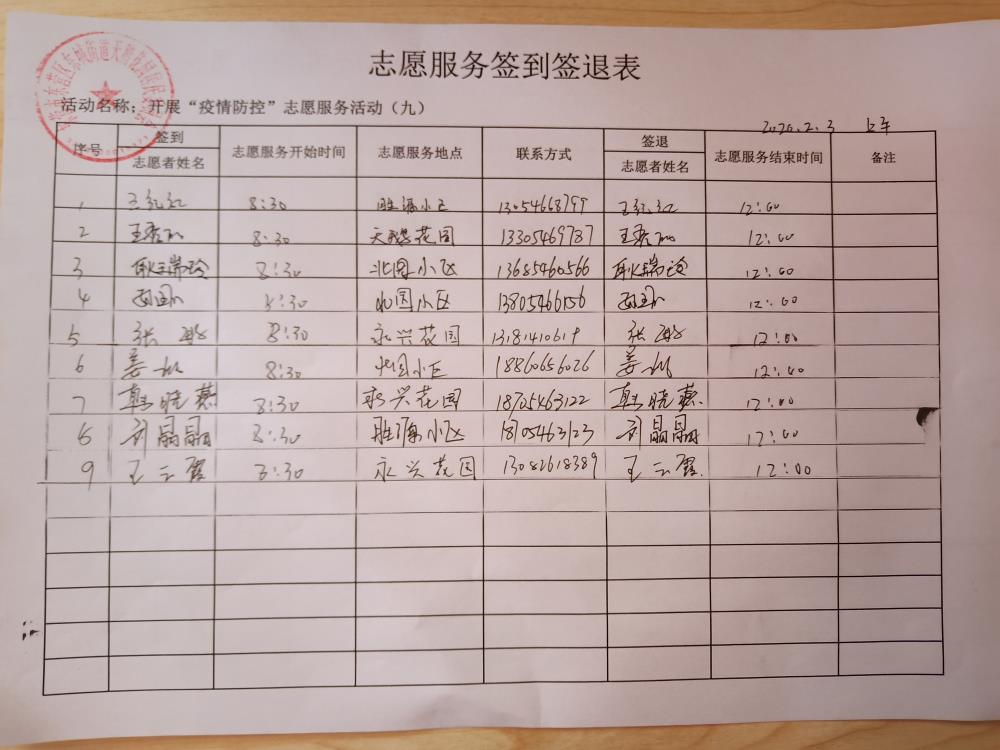 志愿服务签到签退表
活动名称：开展“疫情防控”志愿服务活动（九）
2020.2.3 上午
序号 签到 志愿者姓名 志愿服务开始时间 志愿服务地点 联系方式 签退 志愿者姓名 志愿服务结束时间 备注
1 王红红 8:30 胜源小区 13054668799 王红红 12:00
2 8:30 天鹅花园 13305469787 12:00
3 耿瑞玲 8:30 北园小区 13685460566 耿瑞玲 12:00
4 8:30 北园小区 13805466156 12:00
5 张 8:30 永兴花园 13181410619 张 12:00
6 姜 8:30 北园小区 18860656026 姜 12:00
7 韩晓燕 8:30 永兴花园 18705463122 韩晓燕 12:00
8 刘晶晶 8:30 胜源小区 18105463123 刘晶晶 12:00
9 王云霞 8:30 永兴花园 13082618389 王云霞 12:00